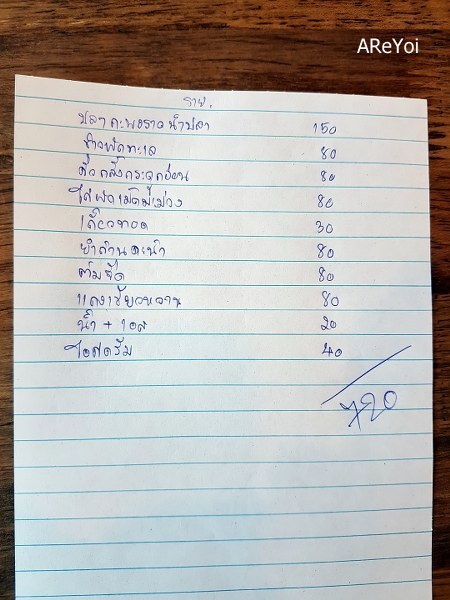 AReYoi
ปลากะพงราดน้ำปลา 150
ข้าวผัดทะเล 80
คั่วกลิ้งกระดูกอ่อน 80
ไก่ผัดเม็ดมะม่วง 80
เกี๊ยวทอด 30
ยำก้านคะน้า 80
ต้มจืด 80
แกงเขียวหวาน 80
น้ำ + 20
ไอศครีม 40
720